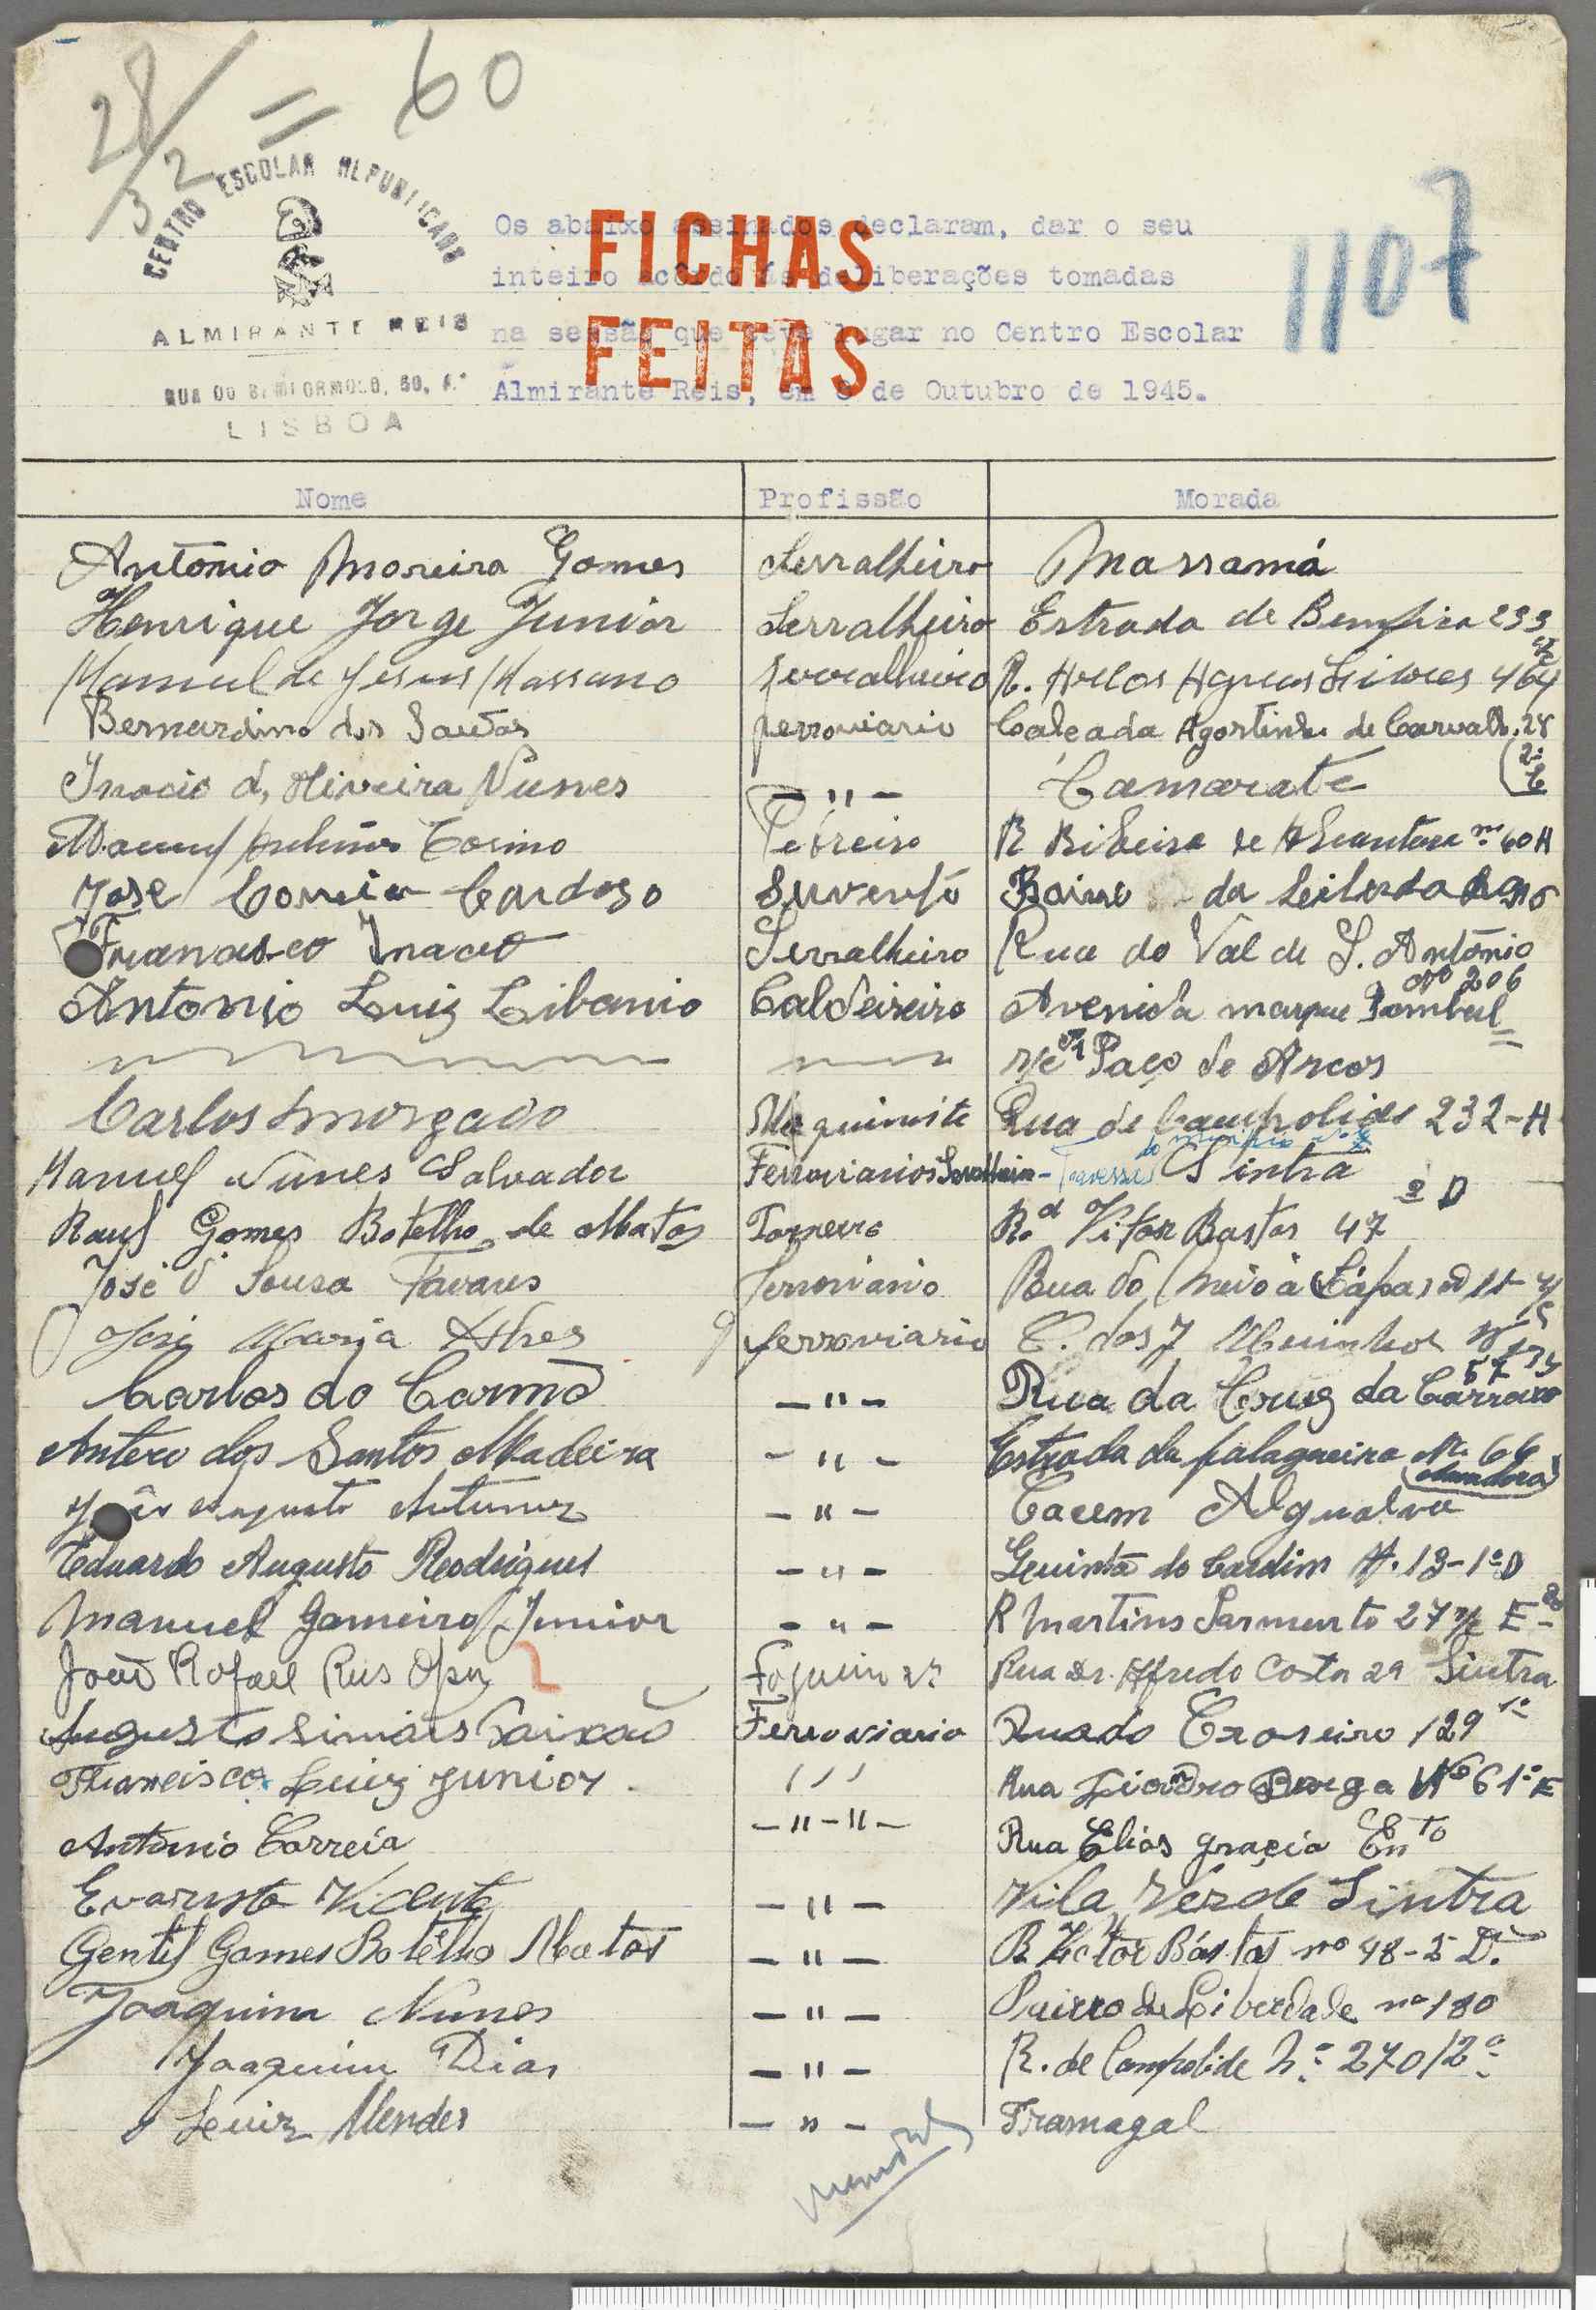 28/32 = 60
CENTRO ESCOLAR REPUBLICANO
ALMIRANTE REIS
RUA DO BEMFORMOSO, 50, 1.º
LISBOA
1107
FICHAS
FEITAS
Os abaixo assinados declaram, dar o seu
inteiro acôrdo ás deliberações tomadas
na sessão que teve lugar no Centro Escolar
Almirante Reis, em 8 de Outubro de 1945.
Nome Profissão Morada
António Moreira Gomes Serralheiro Massamá
Henrique Jorge Junior Serralheiro Estrada de Bemfica 233
Manuel de Jesus Massano Serralheiro R. Arcos Aguas Livres 464
Bernardino dos Santos ferroviario Calçada Agostinho de Carvalho. 28
Inacio d, Oliveira Nunes – " – Camarate
Cosmo R Ribeira de Alcantara nº 60 A
José Correia Cardoso Servente Bairro da Liberdade
Francisco Inacio Serralheiro Rua do Val de S. António
Nº 206
Antonio Luiz Libanio Caldeireiro Avenida marque Pombal
r/c Paço de Arcos
Carlos Morgado Maquinista Rua de Campolide 232-A
Manuel Nunes Salvador Ferroviarios Serralheiro - Travessa do Sintra
Raul Gomes Botelho de Matos Torneiro R. Vitor Bastos 47 D
José d' Sousa Tavares ferroviario Rua do Meio á Lápa
José Maria Alves ferroviario C. dos 7 Muinhos
Carlos do Carmo – " – Rua da Cruz da Carreira 57
Antero dos Santos Madeira – " – Estrada da falagueira Nº 66
(Amadora)
João Augusto Antunes – " – Cacem Agualva
Eduardo Augusto Rodrigues – " – Quinta do Cardim Nº. 13-1º D
Manuel Gameiro Junior – " – R Martins Sarmento 27 r/c E
João Rafael Reis Fogueiro Rua Dr. Alfredo Costa 29 Sintra
Augusto Simões Paixão Ferroviario Rua do Croseiro 129 1º
Francisco Luiz Junior ' ' ' Rua Braga Nº 6 1º E
Antonio Correia – " – " – Rua Elias gracia
Evaristo Vicente – " – Vila Verde Sintra
Gentil Gomes Botelho Matos – " – R Vitor Bastos nº 48-2 D.
Joaquim Nunes – " – Liberdade nº 180
Joaquim Dias – " – R. de Campolide Nº 270/2º
Luiz Mendes – " – Tramagal